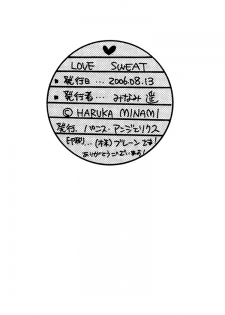 LOVE SWEAT
■発行日…2006.08.13
■発行者…みなみ遥
© HARUKA MINAMI
発行.パニス・アンジェリクス
印刷…(株)ブレーンです!
ありがとうございます!